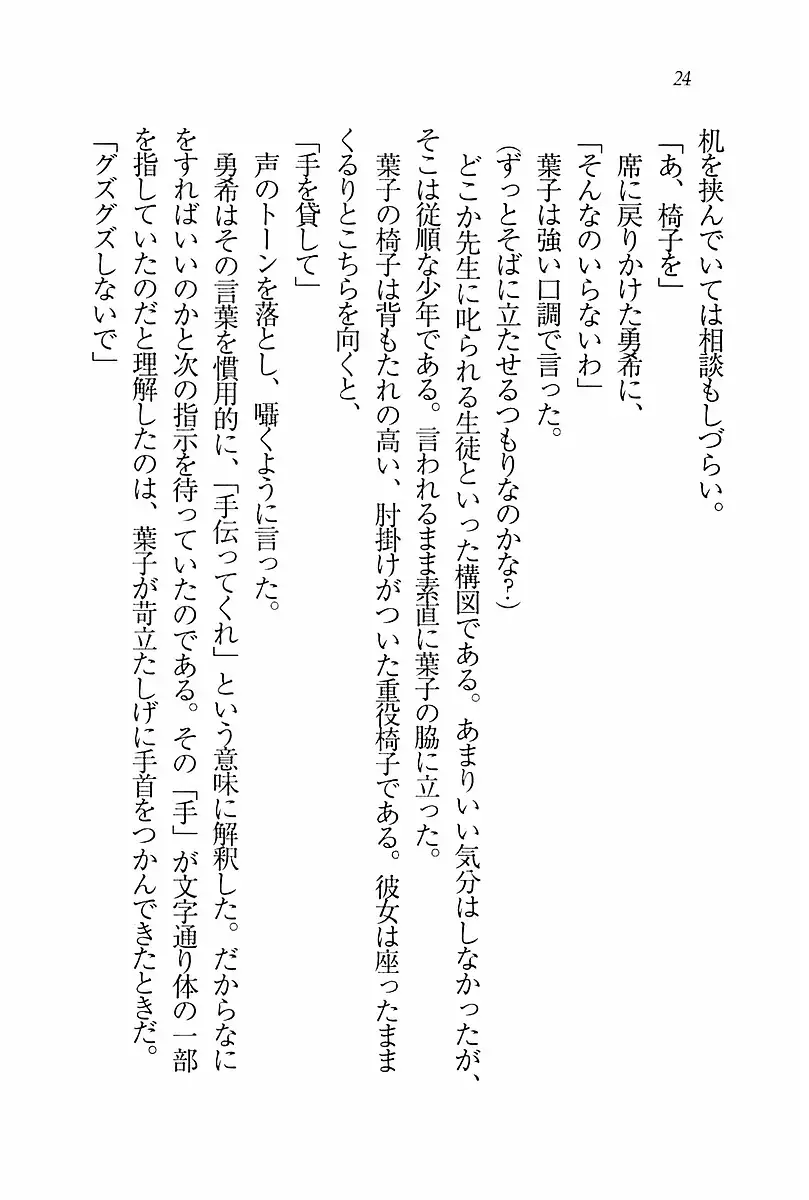 24
机を挟んでいては相談もしづらい。
「あ、椅子を」
席に戻りかけた勇希に、
「そんなのいらないわ」
葉子は強い口調で言った。
(ずっとそばに立たせるつもりなのかな?)
どこか先生に叱られる生徒といった構図である。あまりいい気分はしなかったが、
そこは従順な少年である。言われるまま素直に葉子の脇に立った。
葉子の椅子は背もたれの高い、肘掛けがついた重役椅子である。彼女は座ったまま
くるりとこちらを向くと、
「手を貸して」
声のトーンを落とし、囁くように言った。
勇希はその言葉を慣用的に、「手伝ってくれ」という意味に解釈した。だからなに
をすればいいのかと次の指示を待っていたのである。その「手」が文字通り体の一部
を指していたのだと理解したのは、葉子が苛立たしげに手首をつかんできたときだ。
「グズグズしないで」